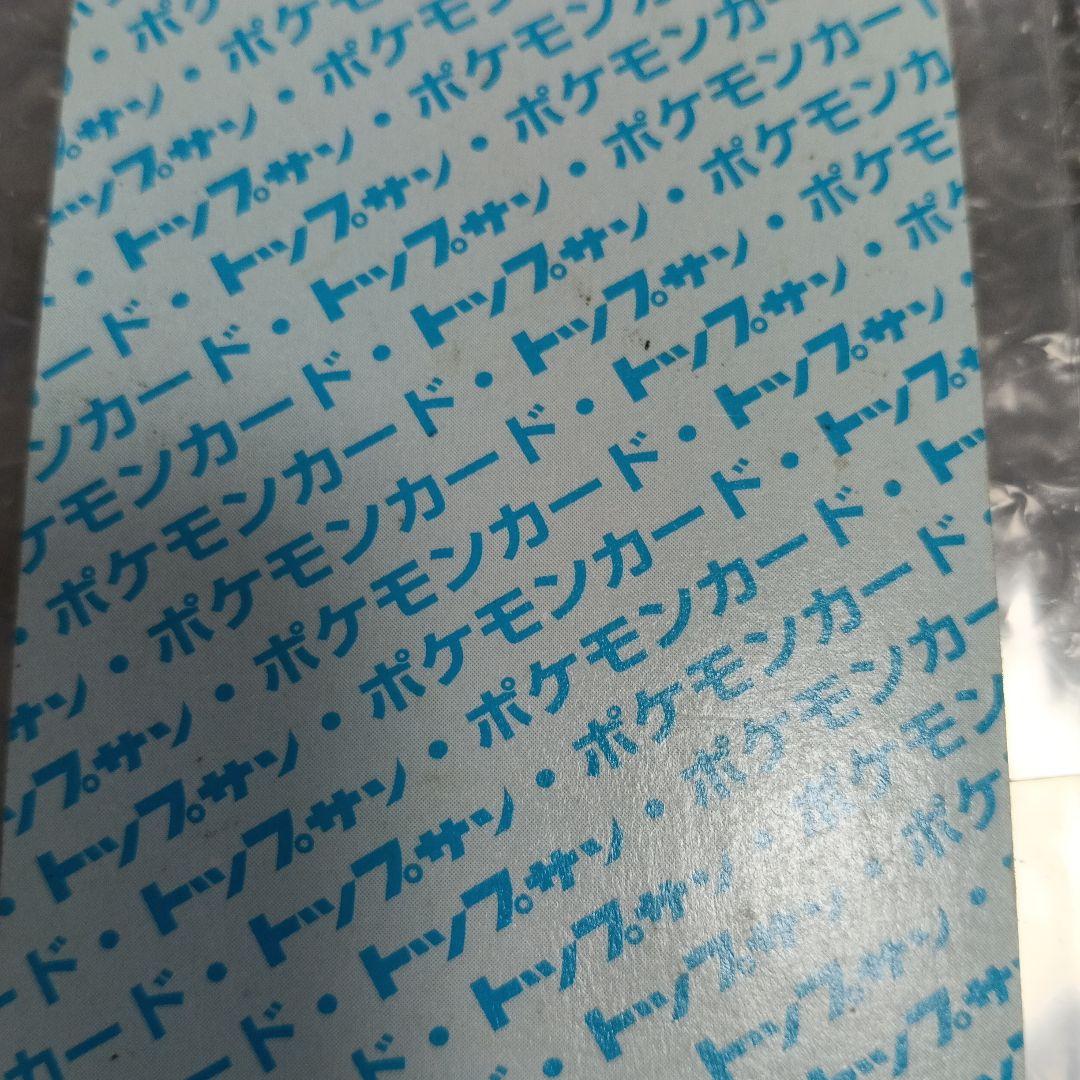 ・ポケモンカ
・ポケモンカ
プサン・ポケモンカ
トップサン・ポケモンカード
・トップサン・ポケモンカ
ード・トップサン・ポケモンカ
ンカード・トップサン・ポケモ
ケモンカード・トップサン・ポ
・ポケモンカード・トップサン・
サン・ポケモンカード・トップサン
ップサン・ポケモンカード・トップサ
・トップサン・ポケモンカード・トッ
ード・トップサン・ポケモンカード・
カード・トップサン・ポケモンカー
ド・トップサン・ポケモン
トップサン・ポケ
トップサン・
トップサ